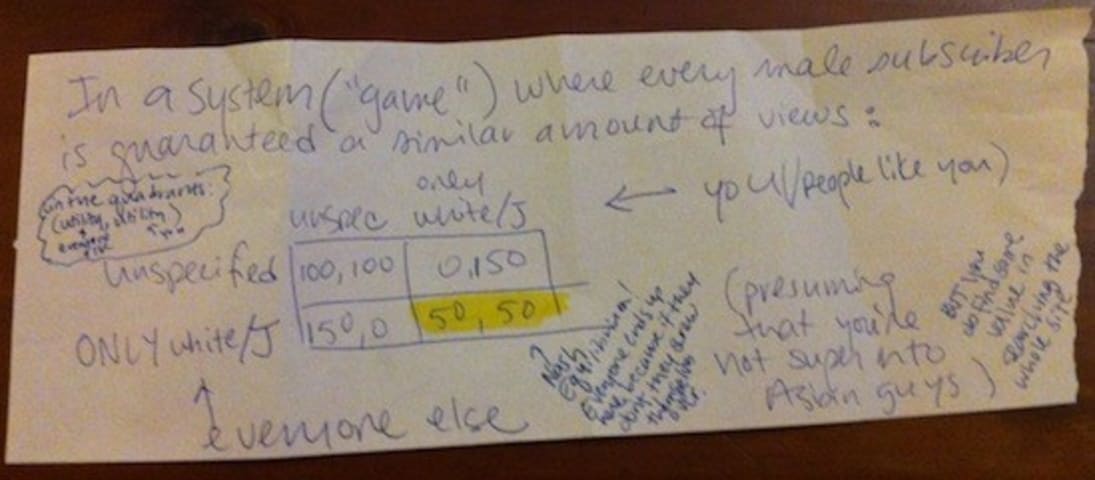 In a system ("game") where every male subscriber
is guaranteed a similar amount of views:
in the quadrants:
(utility, utility)
everyone else
you
only
unspec white/J
← you (/people like you)
unspecified 100,100 0,150
ONLY white/J 150,0 50,50
↑
everyone else
Nash
Equilibrium!
Everyone ends up
here, because if they
don't they screw
themselves
over.
(presuming
that you're
not super into
Asian guys)
BUT you
do find some
value in
searching the
whole site